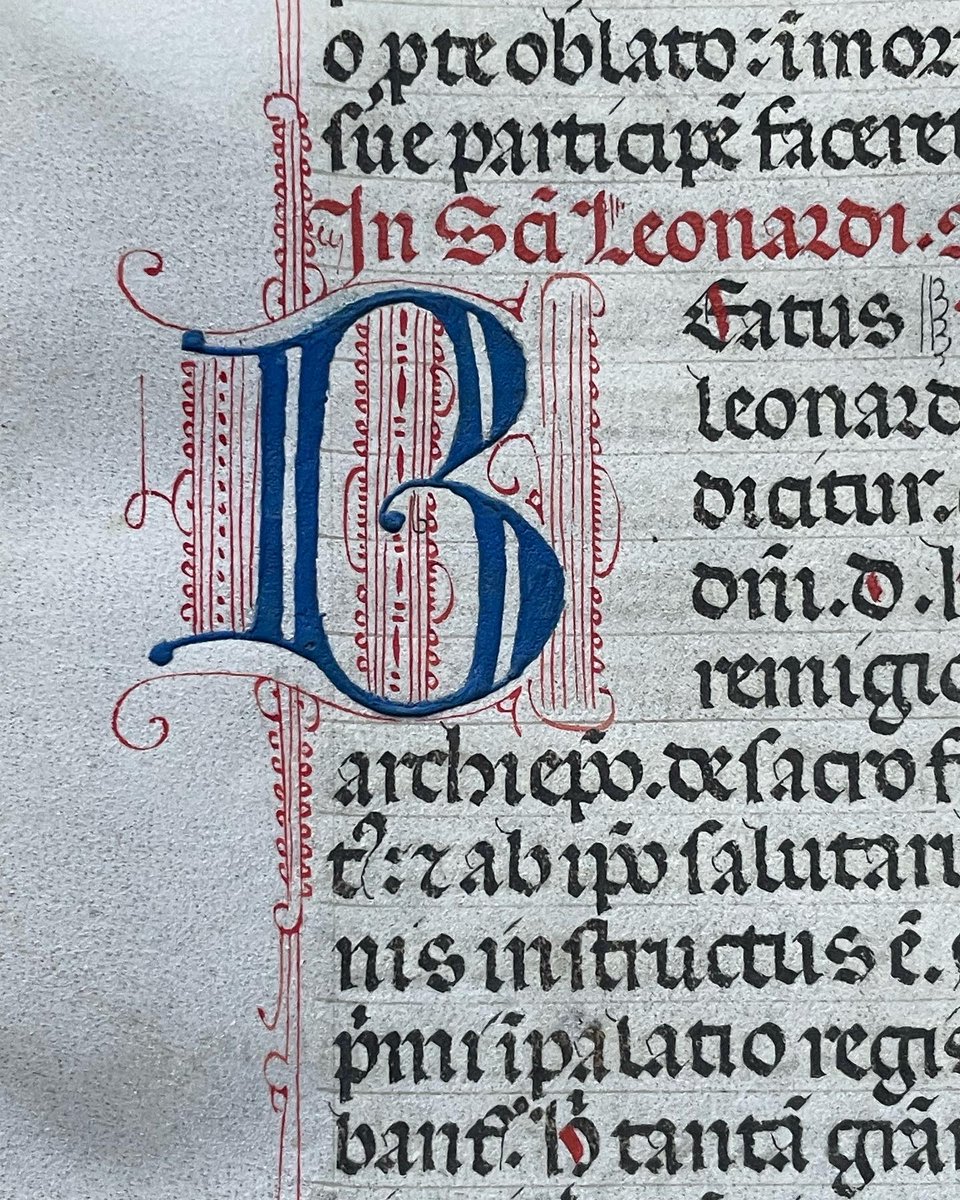 o p̱te oblato: ĩmor
sue participẽ facere
In Scĩ Leonardi.
BEatus
leonard
dicitur.
dñi. d.
remigi
archiep̃o. de sacro f
t: ⁊ ab ip̃o salutari
nis instructus ẽ.
p̃mi ĩ palatio regis
bant. tantã grã